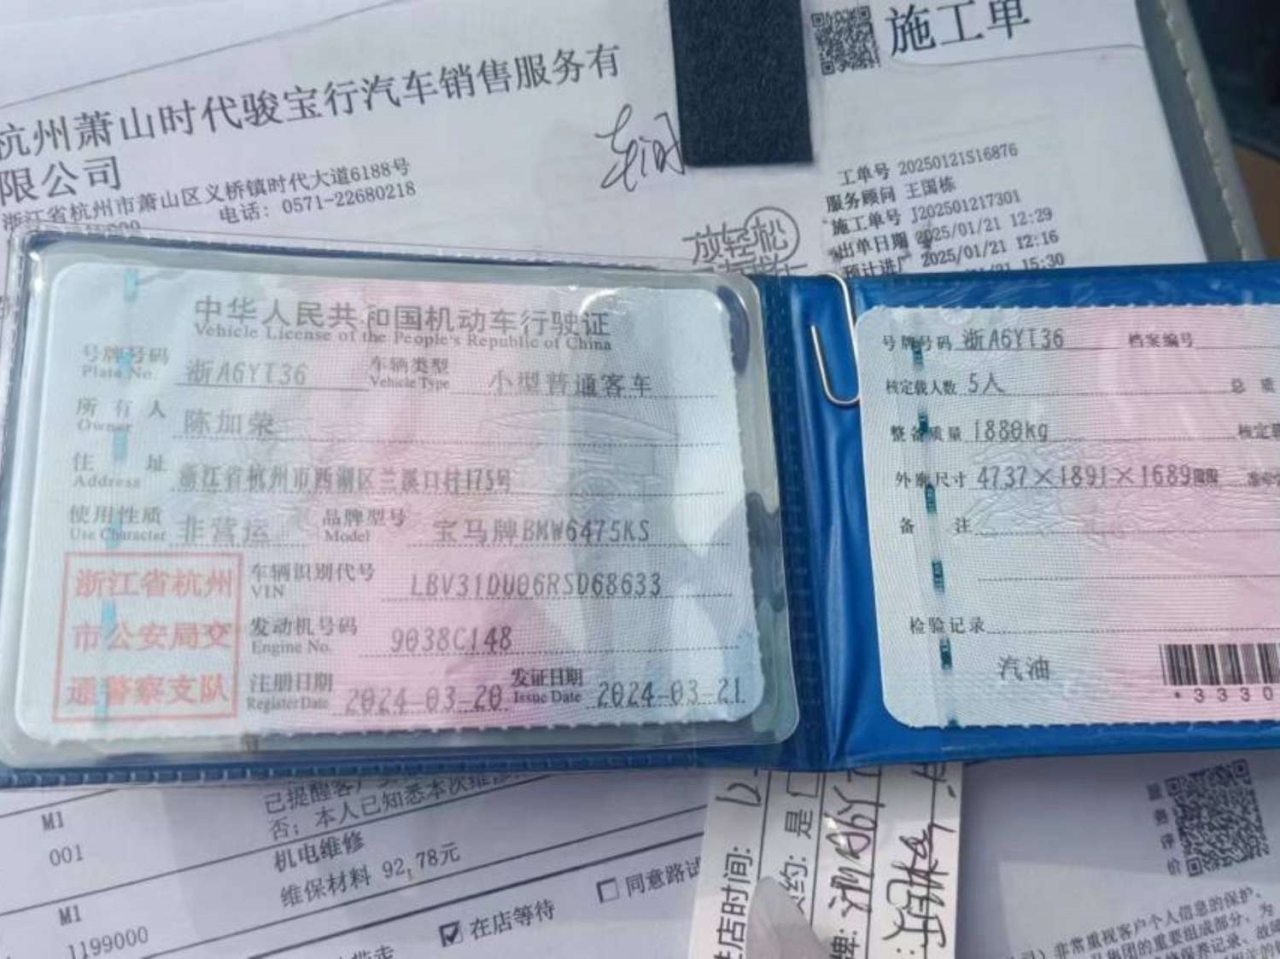 施工单
杭州萧山时代骏宝行汽车销售服务有
限公司
浙江省杭州市萧山区义桥镇时代大道6188号
电话: 0571-22680218
工单号 20250121S16876
服务顾问 王国栋
施工单号 J202501217301
出单日期 2025/01/21 12:29
预计进厂 2025/01/21 12:16
/21 15:30
放轻松
中华人民共和国机动车行驶证
Vehicle License of the People's Republic of China
号牌号码 浙A6YT36 车辆类型 小型普通客车
Plate No. Vehicle Type
所有人 陈加荣
Owner
住址 浙江省杭州市西湖区兰溪口村175号
Address
使用性质 非营运 品牌型号 宝马牌BMW6475KS
Use Character Model
车辆识别代号 LBV31DU06RSD68633
VIN
发动机号码 9038C148
Engine No.
注册日期 2024-03-20 发证日期 2024-03-21
Register Date Issue Date
浙江省杭州
市公安局交
通警察支队
号牌号码 浙A6YT36 档案编号
核定载人数 5人 总质
整备质量 1880kg 核定载
外廓尺寸 4737×1891×1689毫米
备注
检验记录
汽油
*3330
已提醒客户
否; 本人已知悉本次维修
M1
001 机电维修
维保材料 92.78元
M1
1199000
在店等待 同意路试
进店时间:
预约: 是
服务评价
非常重视客户个人信息的保护,
集团的重要组成部分, 为